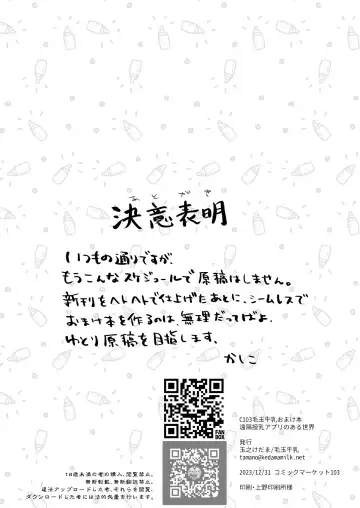 あとがき
決意表明
いつもの通りですが、
もうこんなスケジュールで原稿はしません。
新刊をヘレヘレで仕上げたあとに、シームレスで
おまけ本を作るのは無理だってばよ。
ゆとり原稿を目指します。
かしこ
FAN
BOX
C103毛玉牛乳おまけ本
遠隔授乳アプリのある世界
発行
玉之けだま/毛玉牛乳
tamano@kedamamilk.net
2023/12/31 コミックマーケット103
印刷・上野印刷所様
18歳未満の者の購入、閲覧禁止。
無断転載、無断翻訳禁止。
違法アップロードした者、それらを閲覧、
ダウンロードした者には法的処置を行います。